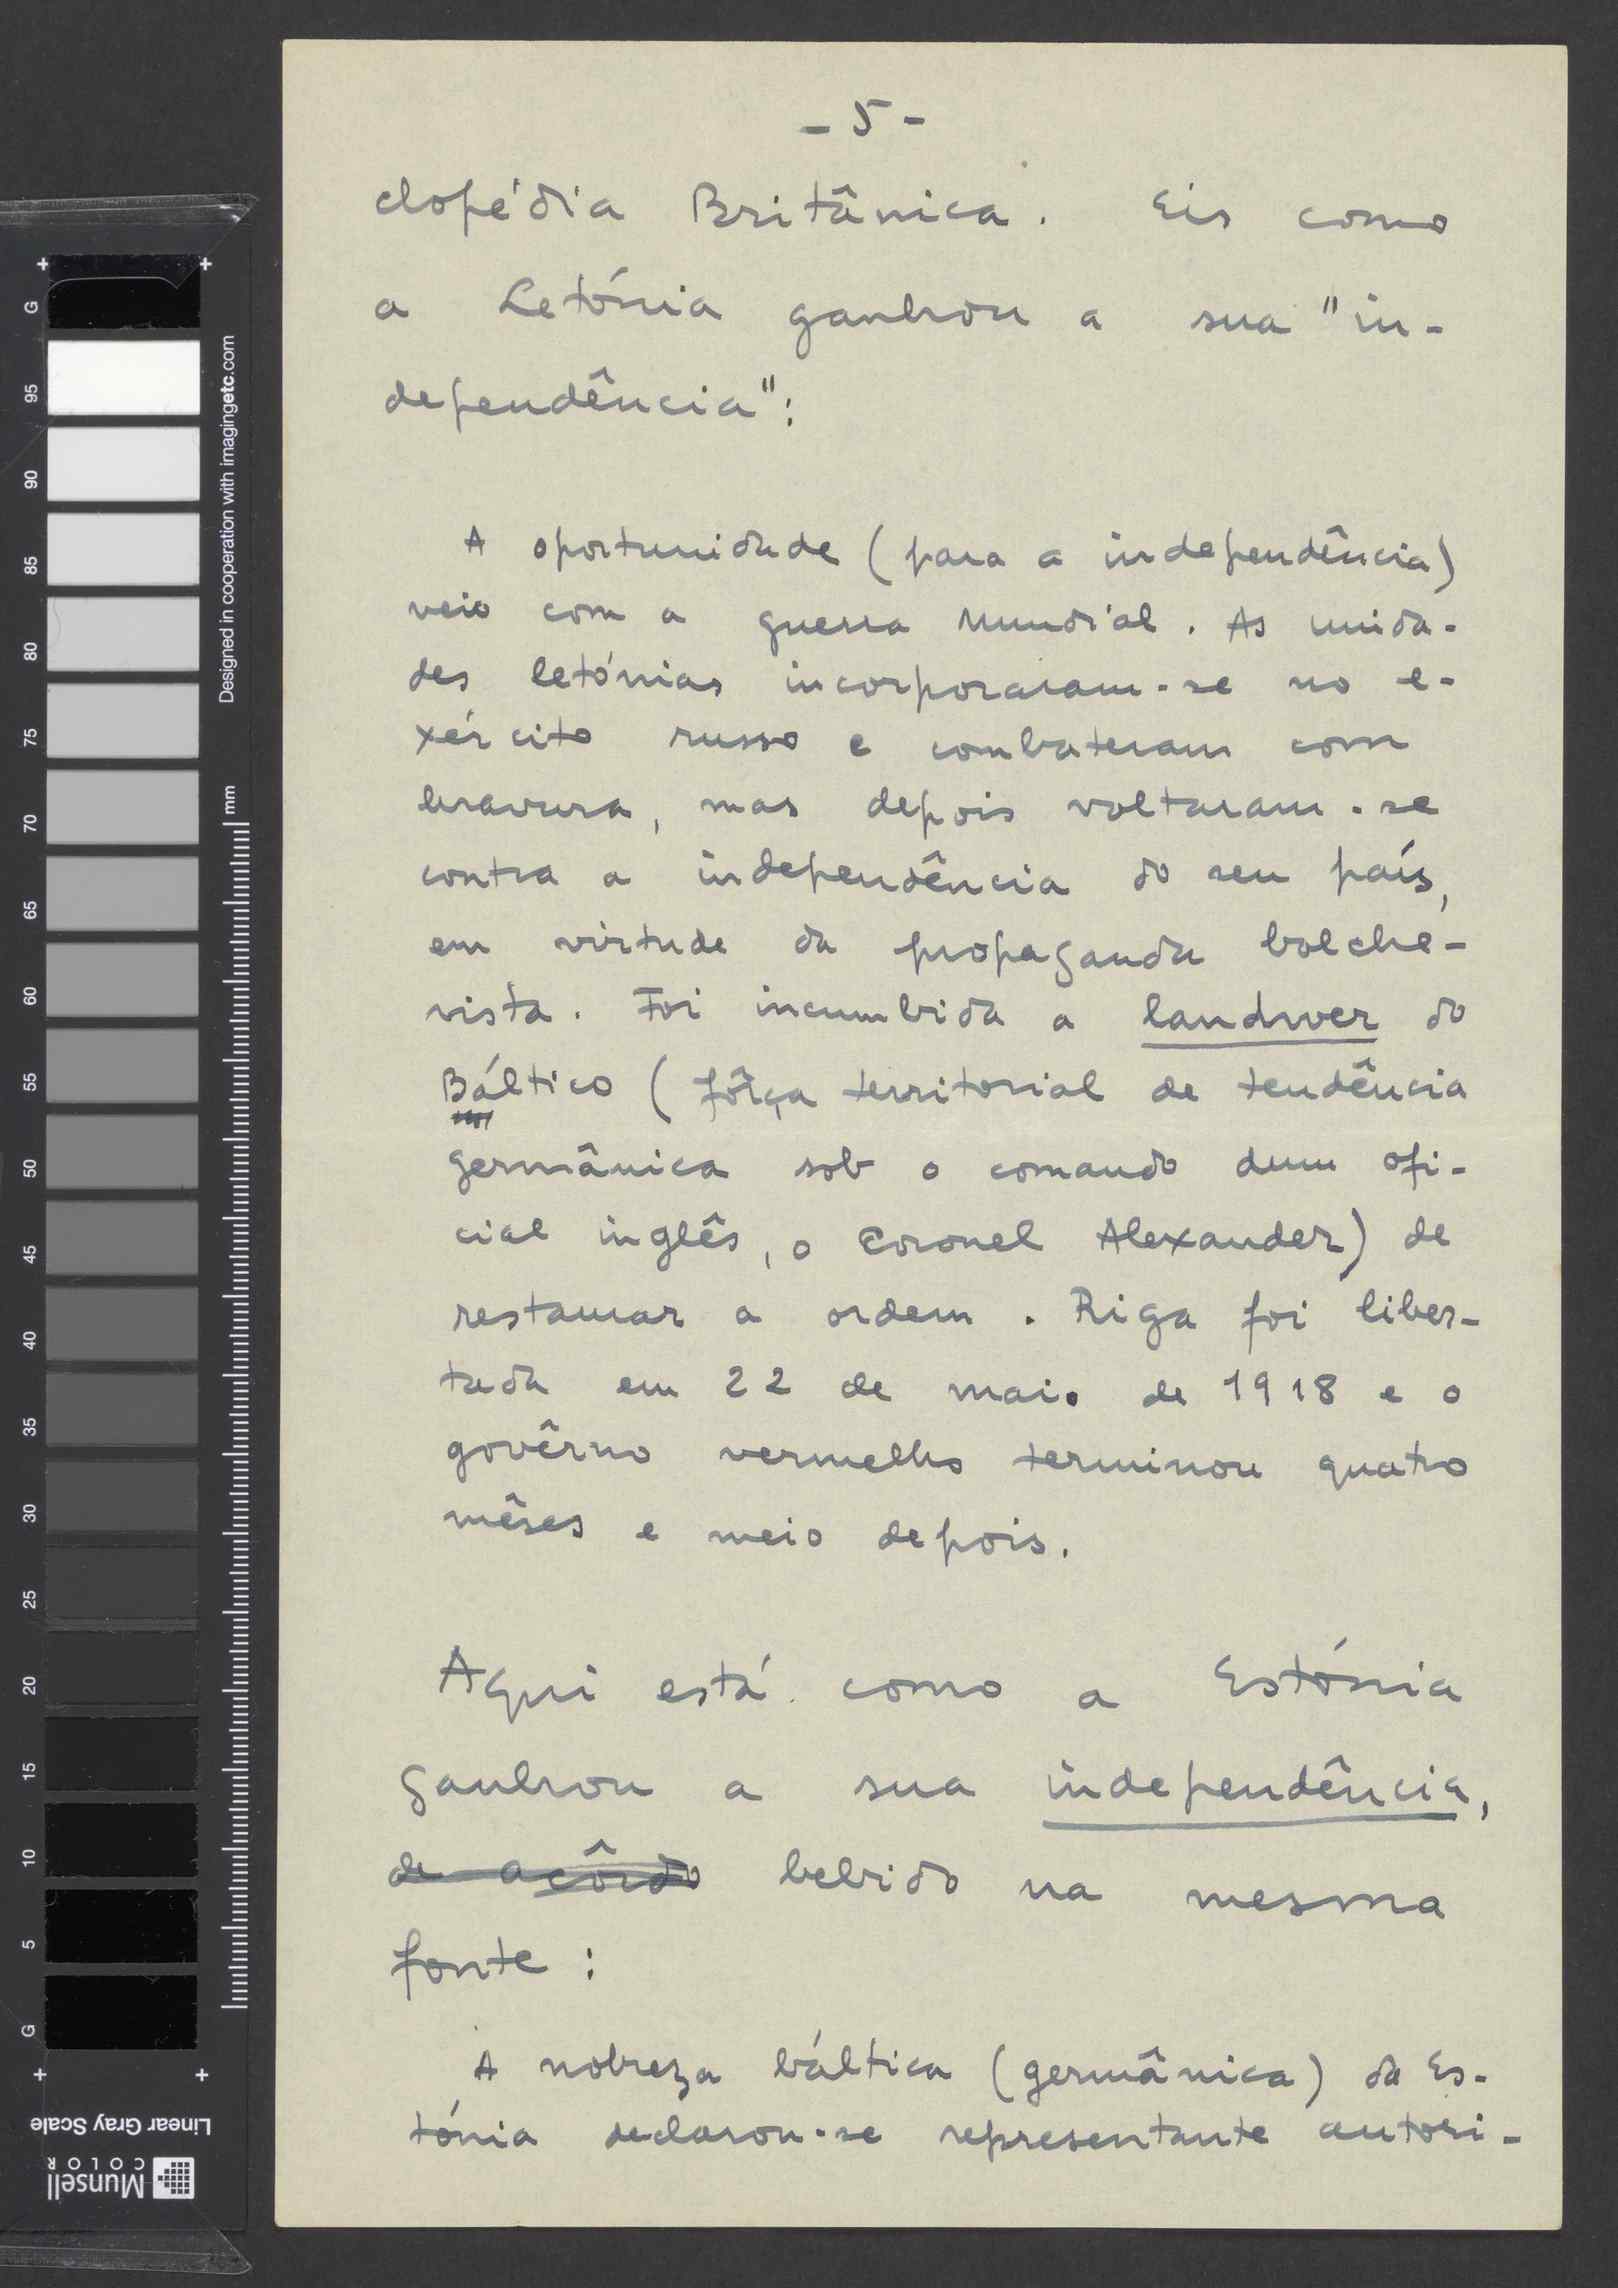 - 5 -
clopédia Britânica. Eis como
a Letónia ganhou a sua "in-
dependência":
A oportunidade (para a independência)
veio com a guerra Mundial. As unida-
des letónias incorporaram-se no e-
xército russo e combateram com
bravura, mas depois voltaram-se
contra a independência do seu país,
em virtude da propaganda bolche-
vista. Foi incumbida a landwer do
Báltico (fôrça territorial de tendência
germânica sob o comando dum ofi-
cial inglês, o Coronel Alexander) de
restaurar a ordem. Riga foi liber-
tada em 22 de maio de 1918 e o
govêrno vermelho terminou quatro
mêses e meio depois.
Aqui está como a Estónia
ganhou a sua independência,
de acôrdo bebido na mesma
fonte:
A nobreza báltica (germânica) da Es-
tónia declarou-se representante autori-
Designed in cooperation with imagingetc.com
mm
G
95
90
85
80
75
70
65
60
55
50
45
40
35
30
25
20
15
10
5
G
Linear Gray Scale
Munsell
COLOR